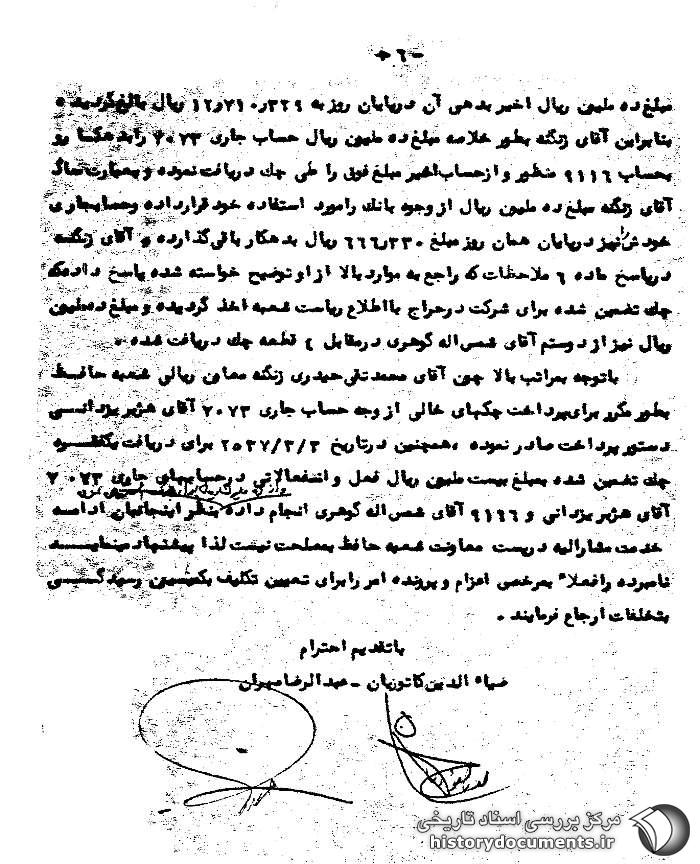 - ٦ -
مبلغ ده ملیون ریال اخیر بدهی آن در پایان روز به ١٢٫٧١٠٫٣٢٩ ریال بالغ گردیده
بنابراین آقای زنگنه بطور خلاصه مبلغ ده ملیون ریال حساب جاری ٧٠٧٣ را بدهکار و
بحساب ٩١١٦ منظور و از حساب اخیر مبلغ فوق را طی چك دریافت نموده و بعبارت
آقای زنگنه مبلغ ده ملیون ریال از وجوه بانك را مورد استفاده خود قرار داده و حسابجاری
خودش نیز در پایان همان روز مبلغ ٦٦٦٫٢٣٠ ریال بدهکار باقی گذارده و آقای زنگنه
در پاسخ ماده ٦ ملاحظات که راجع به موارد بالا از او توضیح خواسته شده پاسخ داده که
چك تضمین شده برای شرکت در حراج با اطلاع ریاست شعبه اخذ گردیده و مبلغ ده ملیون
ریال نیز از دوستم آقای شمس اله گوهری در مقابل ٤ قطعه چك دریافت شده .
با توجه بمراتب بالا چون آقای محمد تقی حیدری زنگنه معاون ریالی شعبه حافظ
بطور مکرر برای پرداخت چکهای خالی از وجه حساب جاری ٧٠٧٣ آقای هژبر یزدانی
دستور پرداخت صادر نموده ، همچنین در تاریخ ٢٥٣٧/٣/٣ برای دریافت یکفقره
چك تضمین شده بمبلغ بیست ملیون ریال فعل و انفعالاتی در حسابهای جاری ٧٠٧٣
آقای هژبر یزدانی و ٩١١٦ آقای شمس اله گوهری انجام داده بنظر اینجانبان ادامه
خدمت مشارالیه در پست معاونت شعبه حافظ بمصلحت نیست لذا پیشنهاد مینماید
نامبرده را فعلاً بمرخصی اعزام و پرونده امر را برای تعیین تکلیف بکمیسیون رسیدگی
بتخلفات ارجاع فرمایند .
با تقدیم احترام
ضیاء الدین کاتوزیان - عبدالرضا مهران
مرکز بررسی اسناد تاریخی
historydocuments.ir